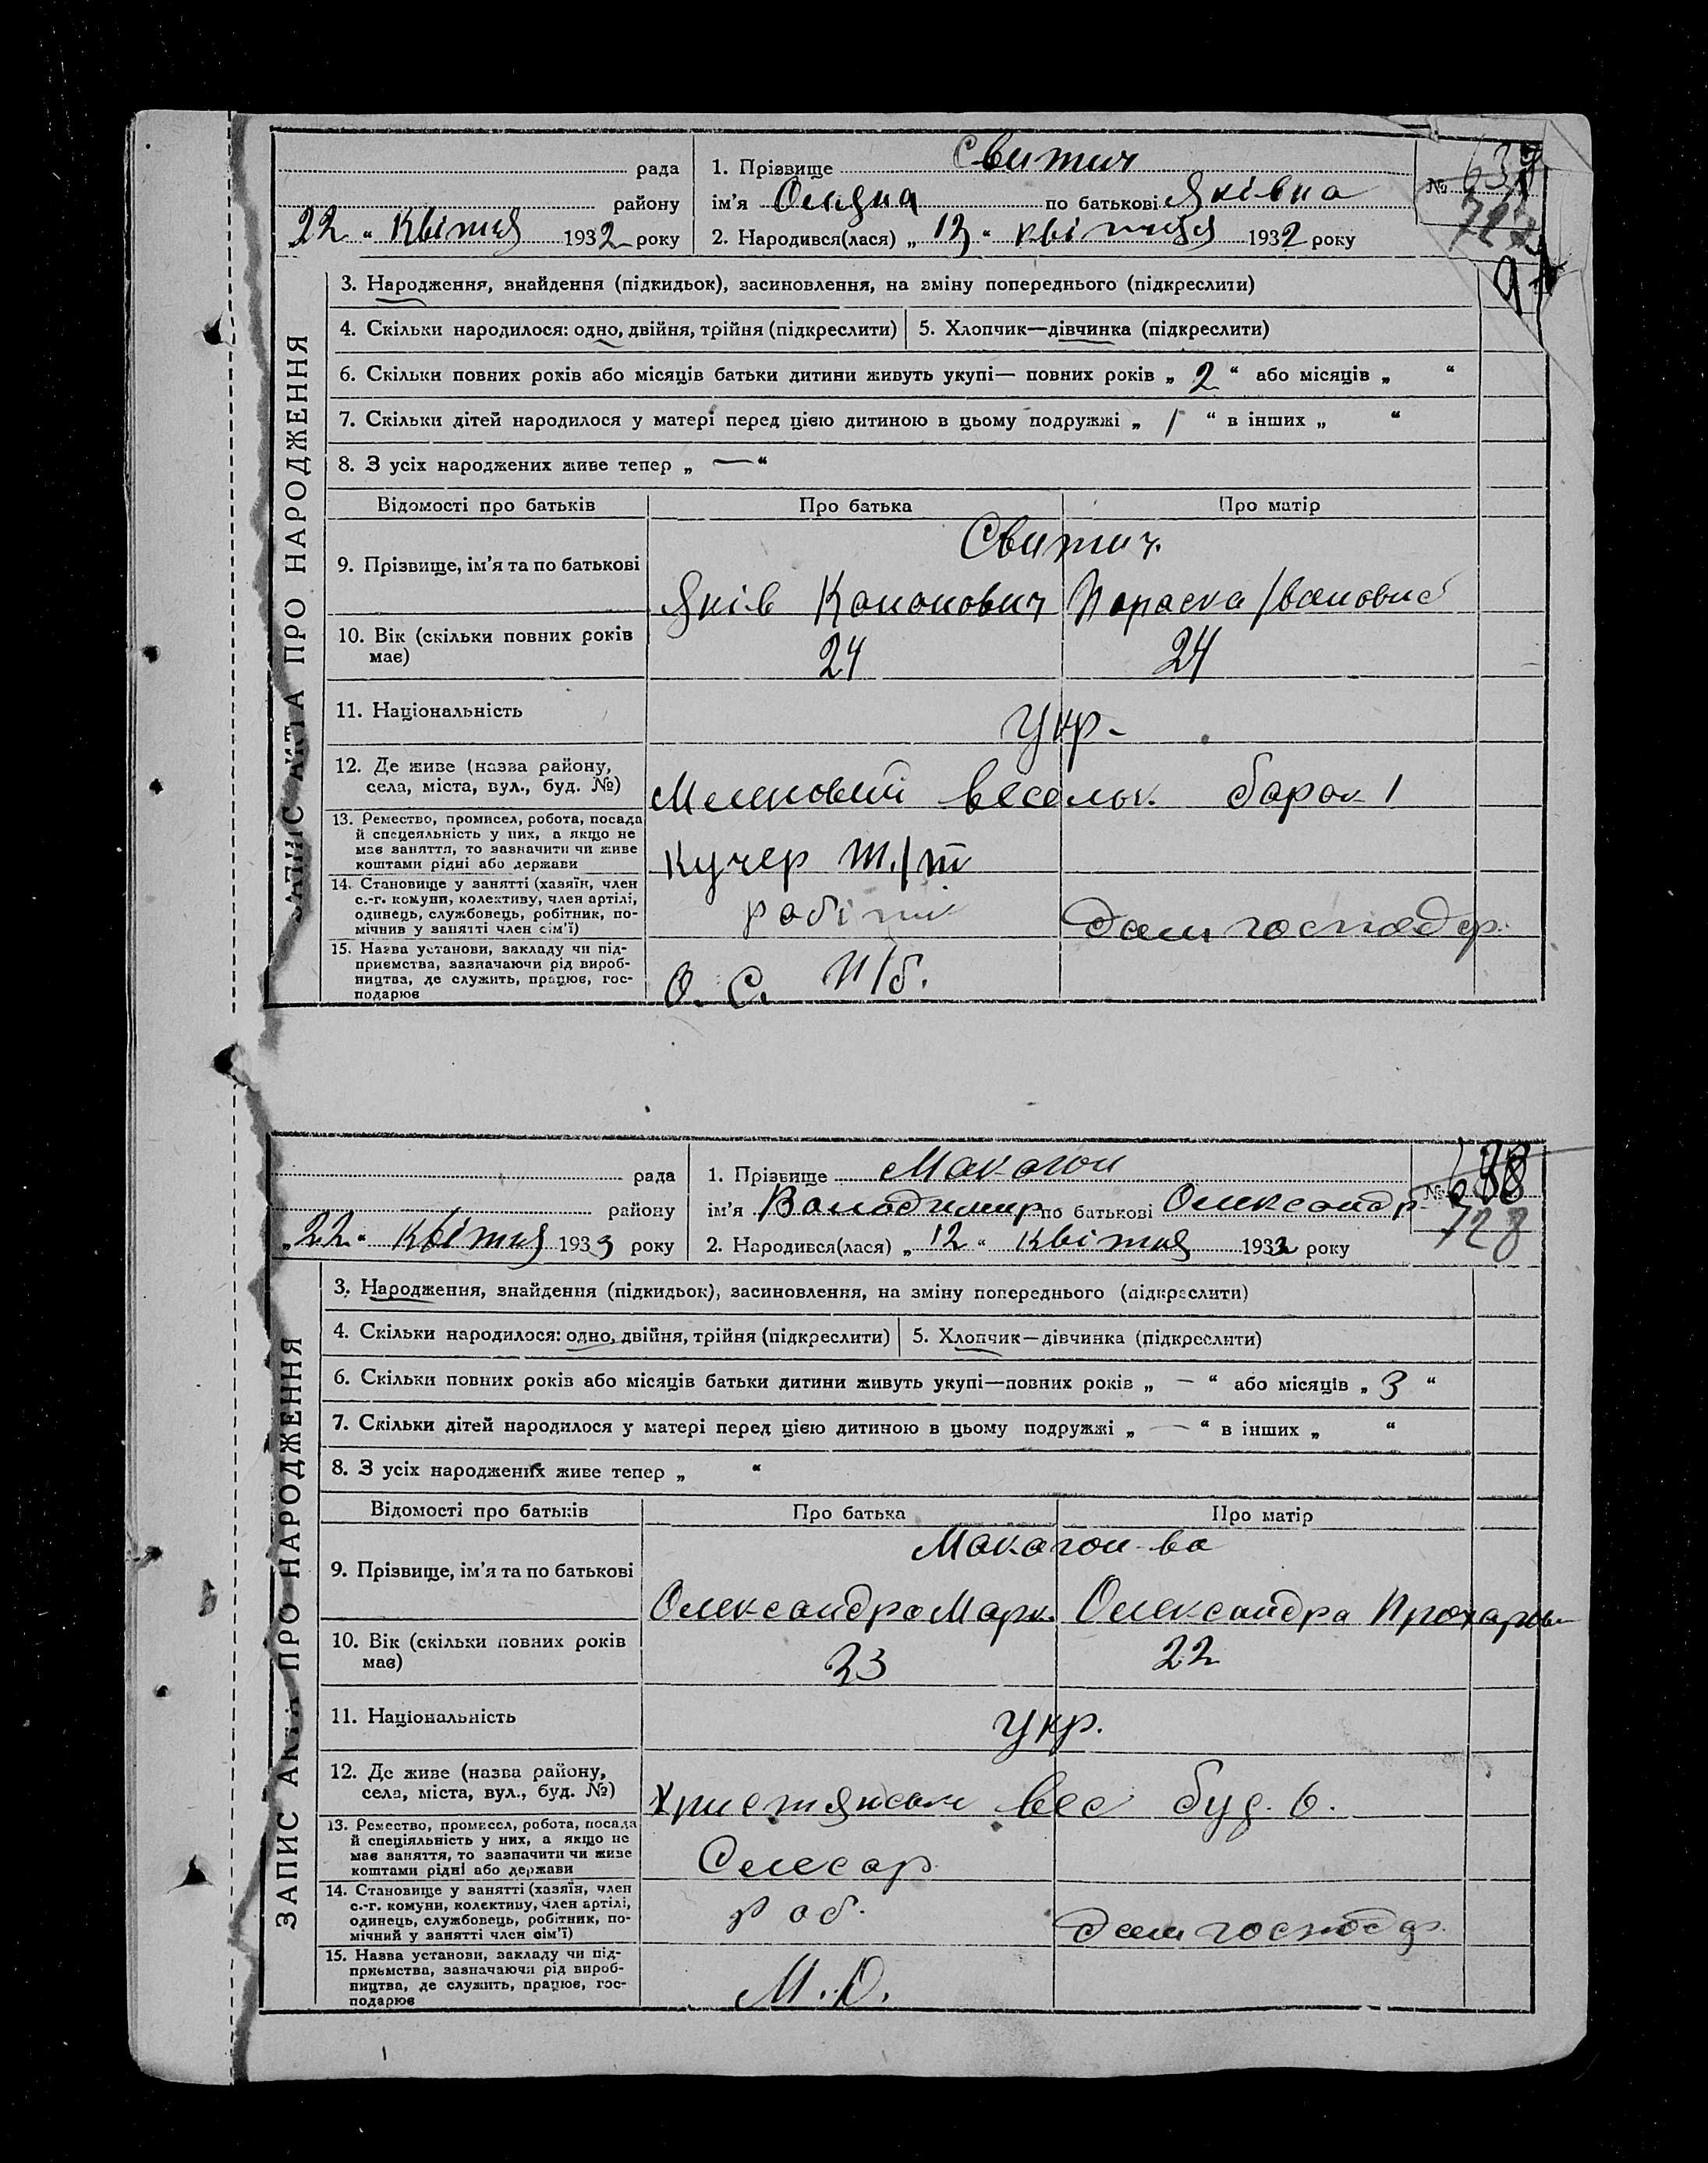 рада
району
22 " Квітня 1932 року
1. Прізвище Свитич
ім'я по батькові Яківна
2. Народився(лася) „ 13 " квітня 1932 року
№ 637
727
97
ЗАПИС АКТА ПРО НАРОДЖЕННЯ
3. Народження, знайдення (підкидьок), засиновлення, на зміну попереднього (підкреслити)
4. Скільки народилося: одно, двійня, трійня (підкреслити) 5. Хлопчик—дівчинка (підкреслити)
6. Скільки повних років або місяців батьки дитини живуть укупі— повних років „ 2 " або місяців „ "
7. Скільки дітей народилося у матері перед цією дитиною в цьому подружжі „ 1 " в інших „ "
8. З усіх народжених живе тепер „ — "
Відомості про батьків Про батька Про матір
Свитич.
9. Прізвище, ім'я та по батькові
Яків Кононович Параска Івановна
10. Вік (скільки повних років
має)
24 24
11. Національність
Укр.
12. Де живе (назва району,
села, міста, вул., буд. №)
барак 1
13. Ремество, промисел, робота, посада
й спецеяльність у них, а якщо не
має заняття, то зазначити чи живе
коштами рідні або держави
Кучер
14. Становище у занятті (хазяїн, член
с.-г. комуни, колективу, член артілі,
одинець, службовець, робітник, по-
мічнив у занятті член сім'ї)
робітник
дом господар.
15. Назва установи, закладу чи під-
приємства, зазначаючи рід вироб-
ництва, де служить, працює, гос-
подарює
О. С.
рада
району
„22 " квітня 1933 року
1. Прізвище Макагон
ім'я Володимир по батькові Олександр
2. Народився(лася) „ 12 " квітня 1932 року
№ 638
728
ЗАПИС АКТА ПРО НАРОДЖЕННЯ
3. Народження, знайдення (підкидьок), засиновлення, на зміну попереднього (підкреслити)
4. Скільки народилося: одно, двійня, трійня (підкреслити) 5. Хлопчик—дівчинка (підкреслити)
6. Скільки повних років або місяців батьки дитини живуть укупі—повних років „ — " або місяців „ 3 "
7. Скільки дітей народилося у матері перед цією дитиною в цьому подружжі „ — " в інших „ "
8. З усіх народжених живе тепер „ "
Відомості про батьків Про батька Про матір
Макагон-ва
9. Прізвище, ім'я та по батькові
Олександро Марк. Олександра Прохаровн
10. Вік (скільки повних років
має)
23 22
11. Національність
Укр.
12. Де живе (назва району,
села, міста, вул., буд. №)
вес буд. 6.
13. Ремество, промисел, робота, посада
й спеціяльність у них, а якщо не
має заняття, то зазначити чи живе
коштами рідні або держави
Слесар
14. Становище у занятті (хазяїн, член
с.-г. комуни, колективу, член артілі,
одинець, службовець, робітник, по-
мічний у занятті член сім'ї)
роб.
дом господар.
15. Назва установи, закладу чи під-
приємства, зазначаючи рід вироб-
ництва, де служить, працює, гос-
подарює
М. О.